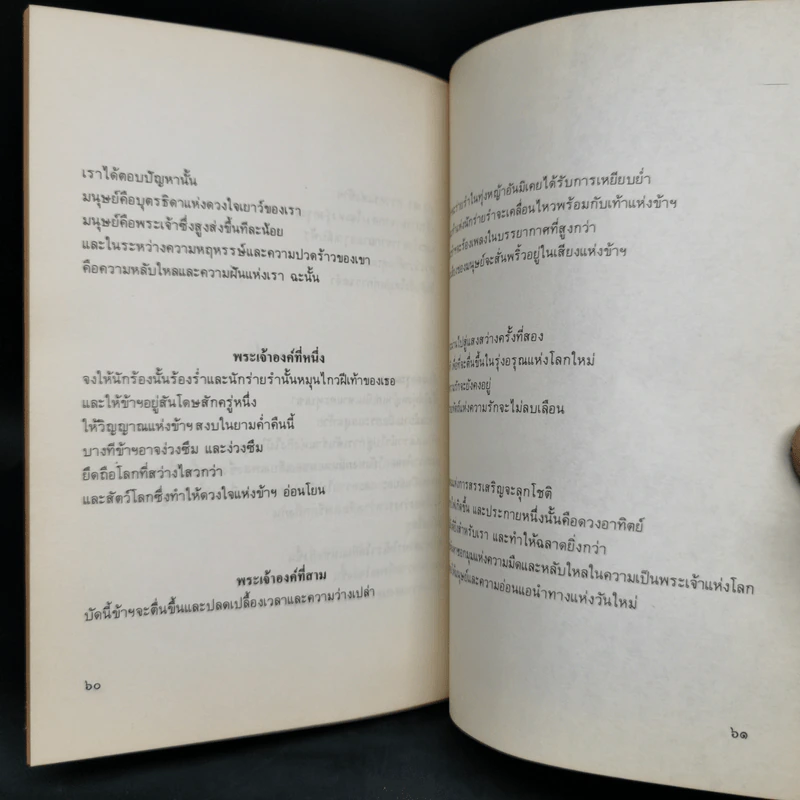 เราได้ตอบปัญหานั้น
มนุษย์คือบุตรธิดาแห่งดวงใจเยาว์ของเรา
มนุษย์คือพระเจ้าซึ่งสูงส่งขึ้นทีละน้อย
และในระหว่างความหฤหรรษ์และความปวดร้าวของเขา
คือความหลับไหลและความฝันแห่งเรา ฉะนั้น
พระเจ้าองค์ที่หนึ่ง
จงให้นักร้องนั้นร้องร่ำและนักร่ายรำนั้นหมุนไกวฝีเท้าของเธอ
และให้ข้าฯอยู่สันโดษสักครู่หนึ่ง
ให้วิญญาณแห่งข้าฯ สงบในยามค่ำคืนนี้
บางทีข้าฯอาจง่วงซึม และง่วงซึม
ยึดถือโลกที่สว่างไสวกว่า
และสัตว์โลกซึ่งทำให้ดวงใจแห่งข้าฯ อ่อนโยน
พระเจ้าองค์ที่สาม
บัดนี้ข้าฯจะตื่นขึ้นและปลดเปลื้องเวลาและความว่างเปล่า
๖๐
รำในทุ่งหญ้าอันมิเคยได้รับการเหยียบย่ำ
แห่งนักร่ายรำจะเคลื่อนไหวพร้อมกับเท้าแห่งข้าฯ
จะร้องเพลงในบรรยากาศที่สูงกว่า
ของมนุษย์จะสั่นพริ้วอยู่ในเสียงแห่งข้าฯ
ไปสู่แสงสว่างครั้งที่สอง
เพื่อที่จะตื่นขึ้นในรุ่งอรุณแห่งโลกใหม่
รักจะยังคงอยู่
แห่งความรักจะไม่ลบเลือน
แห่งการสรรเสริญจะลุกโชติ
ขึ้น และประกายหนึ่งนั้นคือดวงอาทิตย์
สำหรับเรา และทำให้ฉลาดยิ่งกว่า
มุมแห่งความมืดและหลับใหลในความเป็นพระเจ้าแห่งโลก
มนุษย์และความอ่อนแอนำทางแห่งวันใหม่
๖๑